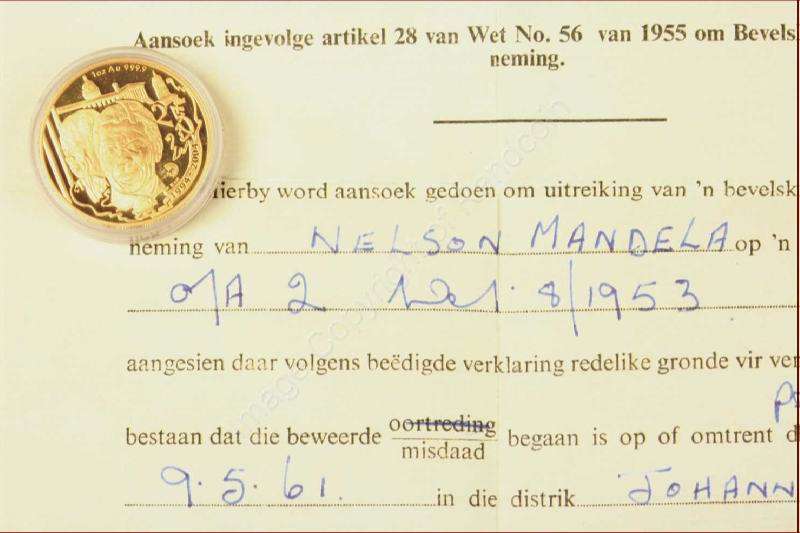 Aansoek ingevolge artikel 28 van Wet No. 56 van 1955 om Bevels
neming.
1oz Au 999.9
1994-2004
Hierby word aansoek gedoen om uitreiking van 'n bevelsk
neming van NELSON MANDELA op 'n
o/A 2 Wet. 8/1953
aangesien daar volgens beëdigde verklaring redelike gronde vir ver
bestaan dat die beweerde oortreding begaan is op of omtrent d
misdaad
9.5.61. in die distrik JOHANN
Image Copyright of Randcoin